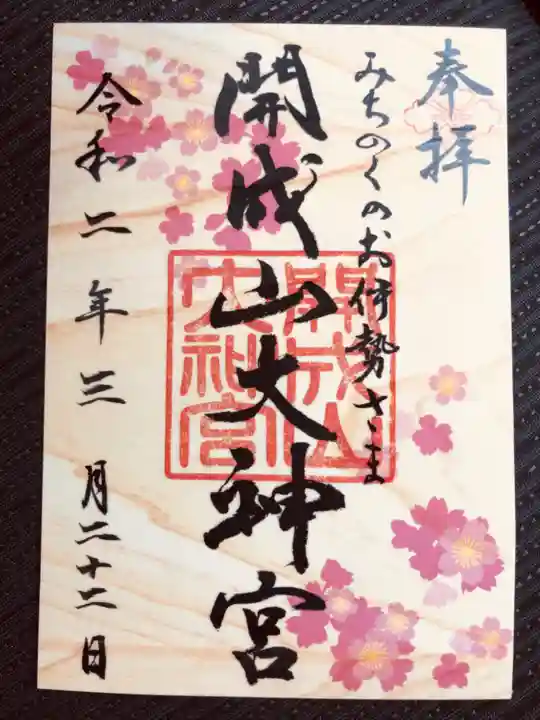 奉拝
みちのくのお伊勢さま
開成山大神宮
開成山
大神宮
令和二年三月二十二日